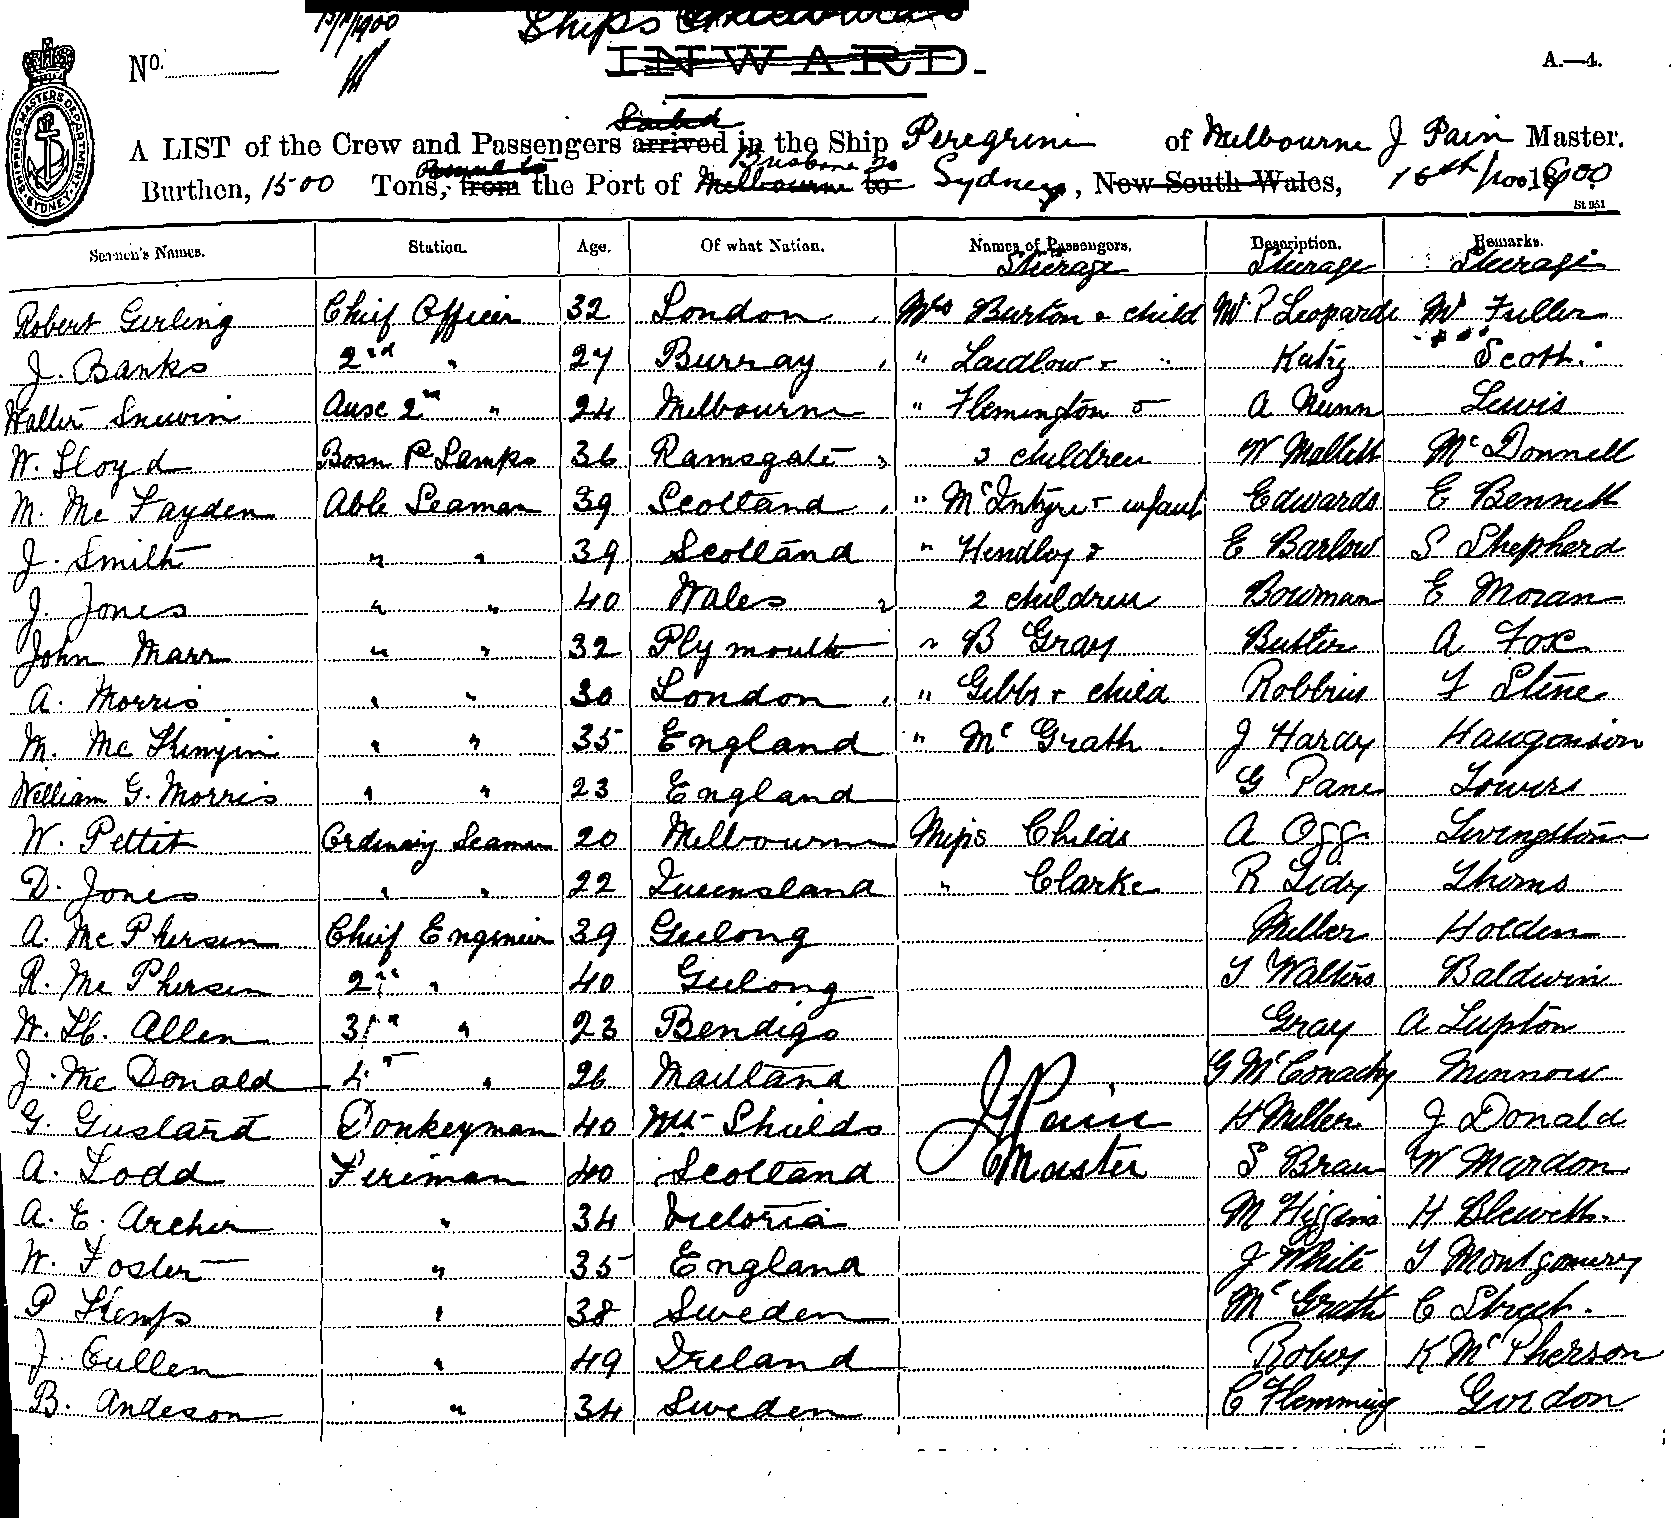 15/11/1900 Ships
No. INWARD. A.—4.
SHIPPING MASTERS DEPARTMENT SYDNEY
Sailed
A LIST of the Crew and Passengers arrived in the Ship Peregrine of Melbourne J Pain Master.
Brisbane to
Burthen, 1500 Tons, from the Port of Melbourne to Sydney, New South Wales, 16th 1900
Seamen's Names. Station. Age. Of what Nation. Names of Passengers. Description. Remarks.
Steerage Steerage Steerage
Robert Girling Chief Officer 32 London Mrs Burton & child Mr P Leopards Mr Fuller
J. Banks 2nd " 27 Burray " Laidlow & " Katz " Scott
Walter 2nd " 24 Melbourne " Flemington & A Nunn Lewis
W. Lloyd Bosn & Lamps 36 Ramsgate children W Mallett McDonnell
M. Mc Fayden Able Seaman 39 Scotland " McIntyre & infant Edwards E Bennett
J. Smith " " 39 Scotland " Hendley & E Barlow S Shepherd
J. Jones " " 40 Wales 2 children Bowman E Moran
John Marr " " 32 Plymouth " B Gray Butler A Fox
A. Morris " " 30 London " Gibbs & child Robbins F Stine
M. Mc " " 35 England " McGrath J Hardy
William G. Morris " " 23 England G Pane Towers
W. Pettit Ordinary Seaman 20 Melbourne Miss Childs A Ogg Livingston
D. Jones " " 22 Queensland " Clarke R Lidy Thoms
A. Mc Phersen Chief Engineer 39 Geelong Miller Holden
R. Mc Phersen 2nd " 40 Geelong T Walters Baldwin
W. H. Allen 3rd " 23 Bendigo Gray A Lupton
J. Mc Donald 4th " 26 Maitland G McConachy Minnow
G. Gustard Donkeyman 40 Nth Shields J Pain H Miller J Donald
A. Todd Fireman 40 Scotland Master S Braun W Mardon
A. E. Archer " 34 Victoria M Higgins H Blewett
W. Foster " 35 England J White T Montgomery
P Kemp " 38 Sweden McGrath C Street
J. Cullen " 49 Ireland Robey K McPherson
B. Andeson " 34 Sweden C Flemming Gordon